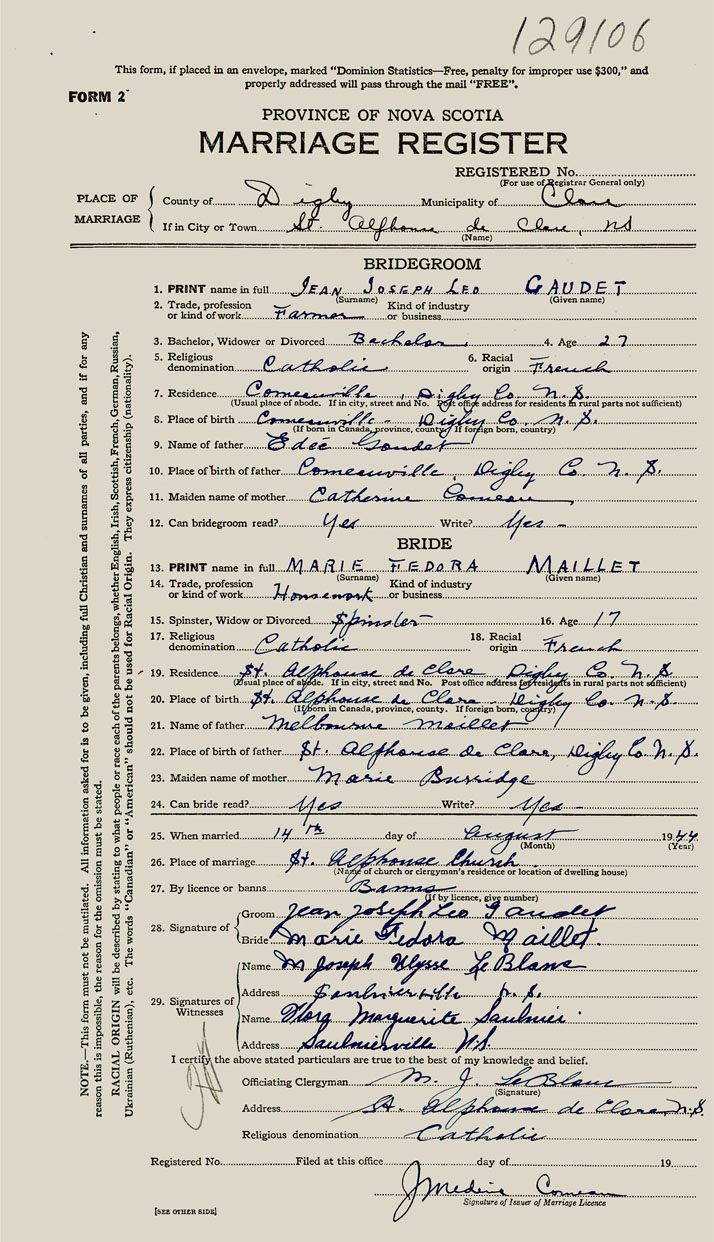 129106
This form, if placed in an envelope, marked “Dominion Statistics—Free, penalty for improper use $300,” and
properly addressed will pass through the mail “FREE”.
FORM 2
PROVINCE OF NOVA SCOTIA
MARRIAGE REGISTER
REGISTERED No.
(For use of Registrar General only)
PLACE OF MARRIAGE
County of Digby Municipality of Clare
If in City or Town St. Alphonse de Clare, NS
(Name)
BRIDEGROOM
1. PRINT name in full JEAN JOSEPH LEO GAUDET
(Surname) (Given name)
2. Trade, profession or kind of work Farmer Kind of industry or business
3. Bachelor, Widower or Divorced Bachelor 4. Age 27
5. Religious denomination Catholic 6. Racial origin French
7. Residence Comeauville, Digby Co. N.S.
(Usual place of abode. If in city, street and No. Post office address for residents in rural parts not sufficient)
8. Place of birth Comeauville - Digby Co, N.S.
(If born in Canada, province, county. If foreign born, country)
9. Name of father Edée Gaudet
10. Place of birth of father Comeauville, Digby Co N.S.
11. Maiden name of mother Catherine Comeau
12. Can bridegroom read? Yes Write? Yes -
BRIDE
13. PRINT name in full MARIE FEDORA MAILLET
(Surname) (Given name)
14. Trade, profession or kind of work Housework Kind of industry or business
15. Spinster, Widow or Divorced Spinster 16. Age 17
17. Religious denomination Catholic 18. Racial origin French
19. Residence St. Alphonse de Clare Digby Co. N.S.
(Usual place of abode. If in city, street and No. Post office address for residents in rural parts not sufficient)
20. Place of birth St. Alphonse de Clare - Digby Co N.S.
(If born in Canada, province, county. If foreign born, country)
21. Name of father Melbourne Maillet
22. Place of birth of father St. Alphonse de Clare, Digby Co. N.S.
23. Maiden name of mother Marie Burridge
24. Can bride read? Yes Write? Yes -
25. When married 14th day of August 1944
(Month) (Year)
26. Place of marriage St. Alphonse Church
(Name of church or clergyman's residence or location of dwelling house)
27. By licence or banns Banns
(If by licence, give number)
28. Signature of
Groom Jean Joseph Leo Gaudet
Bride Marie Fedora Maillet.
29. Signatures of Witnesses
Name M Joseph Ulysse LeBlanc
Address Saulnierville N.S.
Name Marguerite Saulnier
Address Saulnierville N.S.
I certify the above stated particulars are true to the best of my knowledge and belief.
Officiating Clergyman M. J. LeBlanc
(Signature)
Address St. Alphonse de Clare, N.S.
Religious denomination Catholic
Registered No. Filed at this office day of 19
J Medric Comeau
Signature of Issuer of Marriage Licence
[SEE OTHER SIDE]
NOTE.—This form must not be mutilated. All information asked for is to be given, including full Christian and surnames of all parties, and if for any
reason this is impossible, the reason for the omission must be stated.
RACIAL ORIGIN will be described by stating to what people or race each of the parents belongs, whether English, Irish, Scottish, French, German, Russian,
Ukrainian (Ruthenian), etc. The words “Canadian” or “American” should not be used for Racial Origin. They express citizenship (nationality).